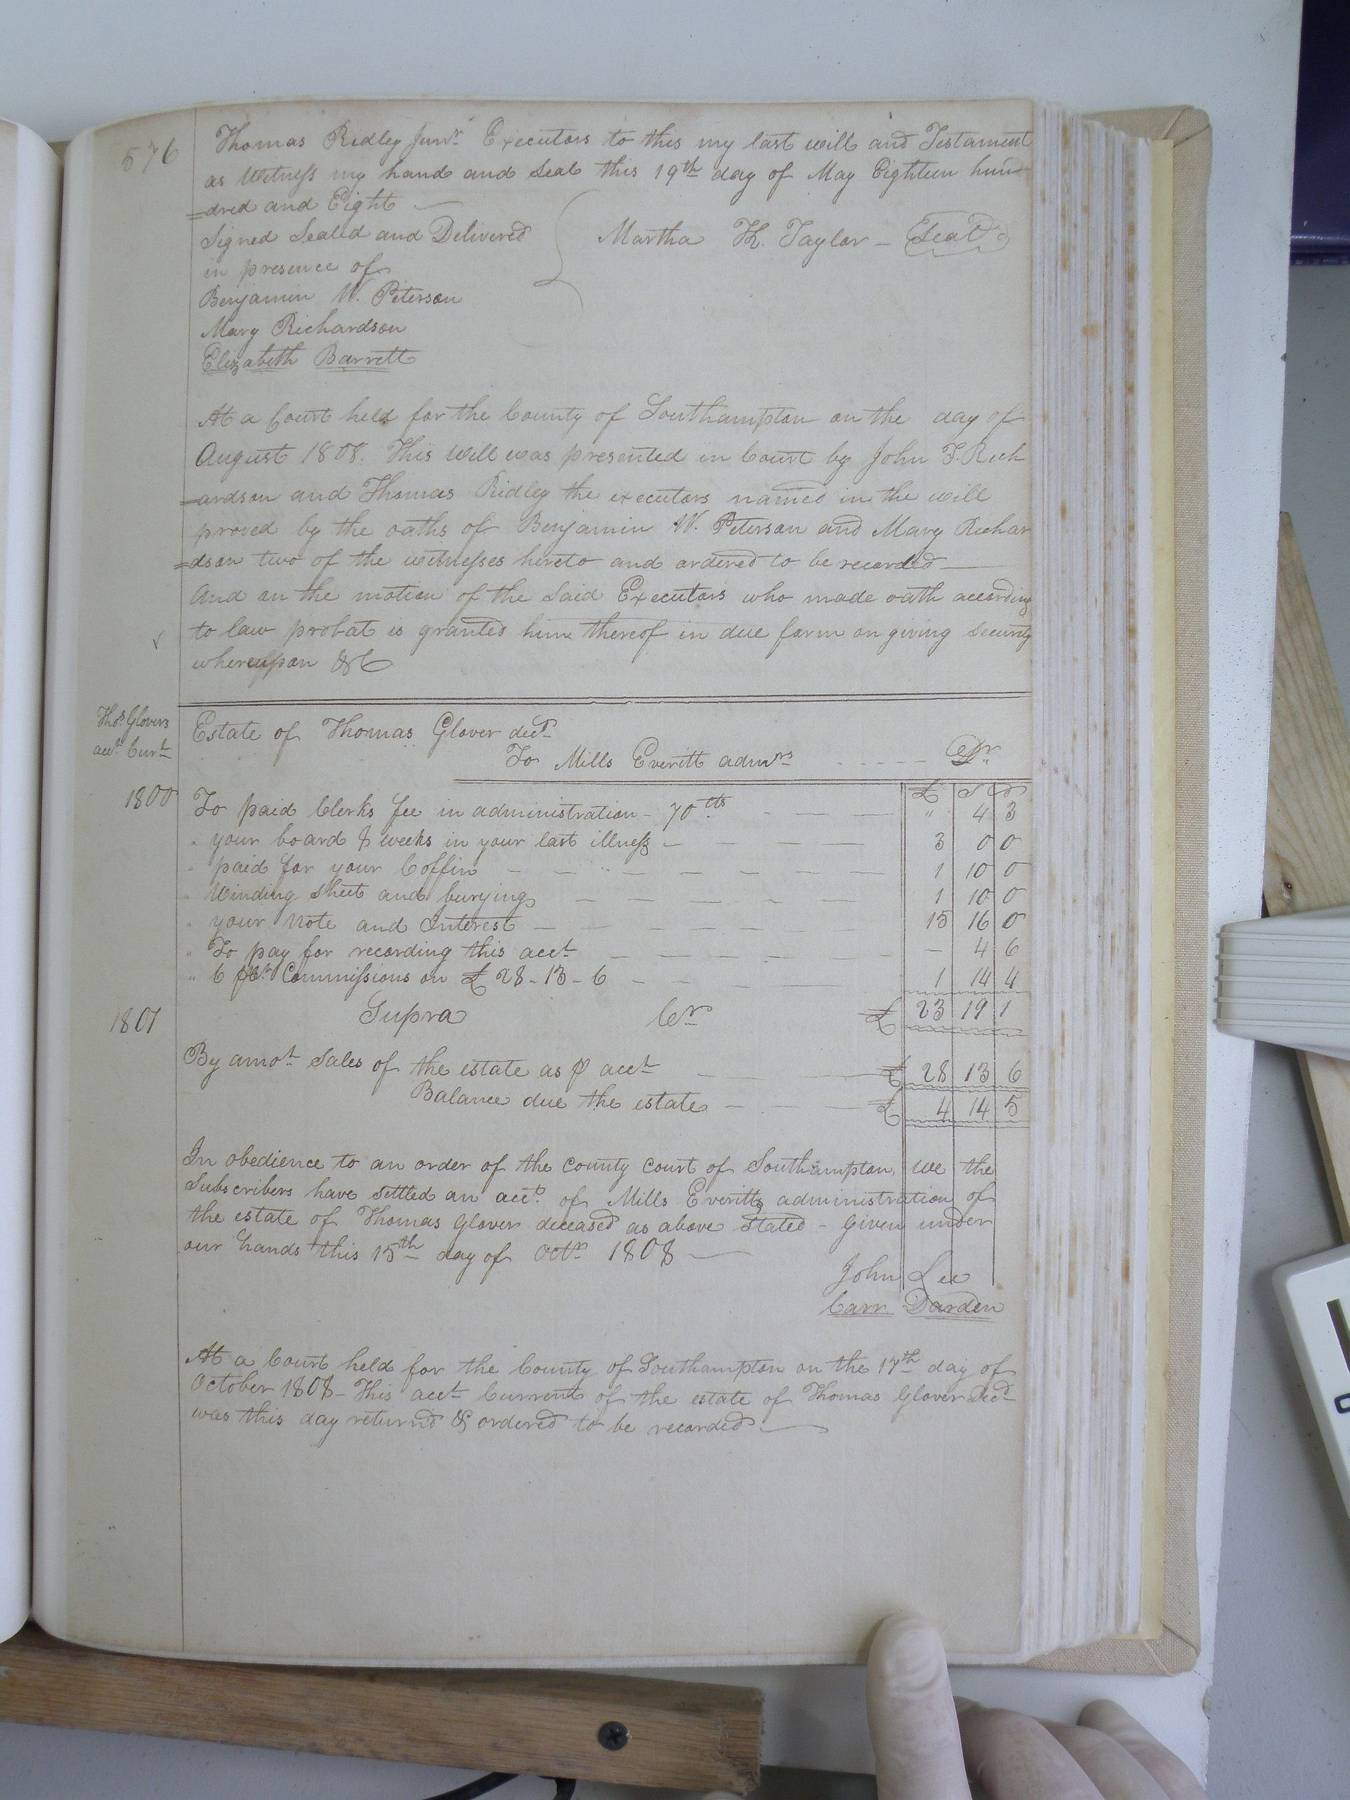 576
Thomas Ridley Junr. Executors to this my last will and Testament
as Witness my hand and Seal this 19th day of May Eighteen hun
=dred and Eight
Signed Sealed and Delivered
in presence of
Martha H. Taylor - Seal
Benjamin W. Peterson
Mary Richardson
Elizabeth Barrett
At a Court held for the County of Southampton on the day of
August 1808. This will was presented in Court by John T. Rich
=ardson and Thomas Ridley the executors named in the will
proved by the oaths of Benjamin W. Peterson and Mary Richar
=dson two of the witnesses hereto and ordered to be recorded
And on the motion of the said Executors who made oath according
to law probat is granted him thereof in due form on giving security
whereupon &C
Thos. Glovers
acct. Curt.
Estate of Thomas Glover decd.
To Mills Everitt admrs. Dr
£ S D
1800 To paid Clerks fee in administration - 70 tts " 4 3
" your board 8 weeks in your last illness 3 0 0
" paid for your Coffin 1 10 0
" Winding sheet and burying 1 10 0
" your note and Interest 15 16 0
" To pay for recording this acct. - 4 6
" 6 pCt. Commissions on £ 28-13-6 1 14 4
1801 Supra Cr £ 23 19 1
By amot. Sales of the estate as p acct. £ 28 13 6
Balance due the estate £ 4 14 5
In obedience to an order of the county court of Southampton, we the
Subscribers have settled an acct. of Mills Everitts administration of
the estate of Thomas Glover deceased as above stated - given under
our hands this 15th day of Octr. 1808
John Lee
Carr Darden
At a Court held for the County of Southampton on the 17th day of
October 1808 - This acct. Current of the estate of Thomas Glover Decd.
was this day returnd & ordered to be recorded